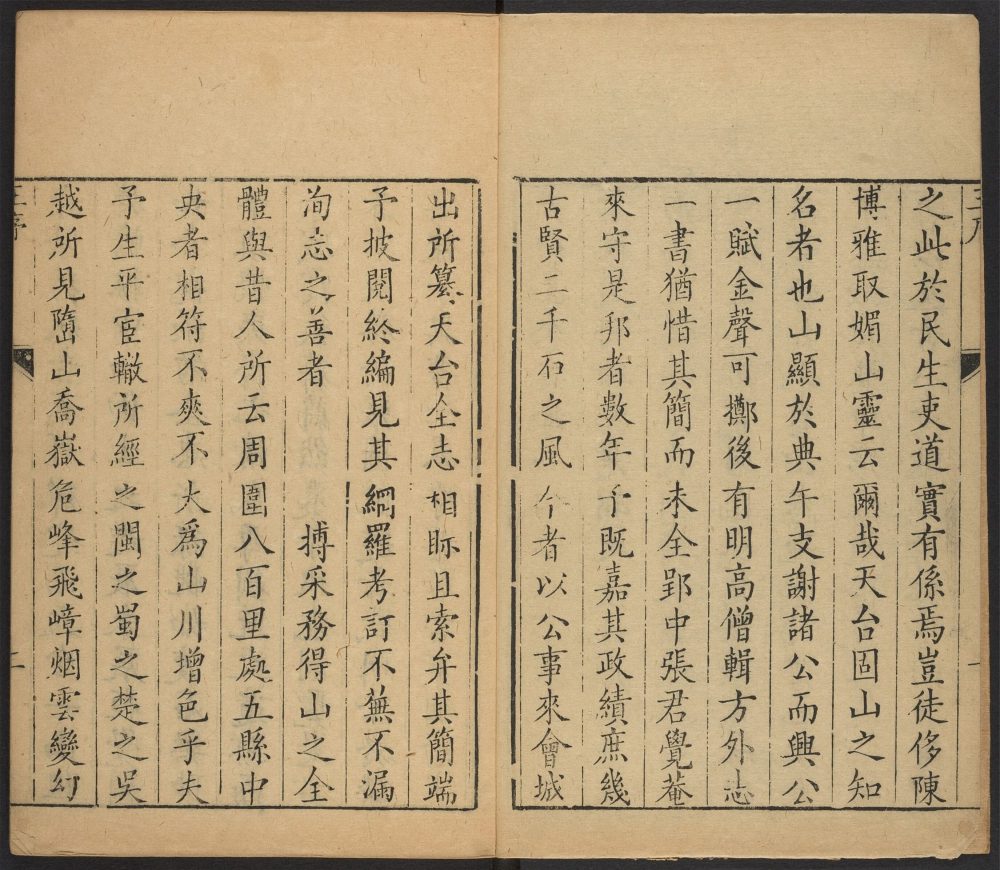 之此於民生吏道實有係焉豈徒侈陳
博雅取媚山靈云爾哉天台固山之知
名者也山顯於典午支謝諸公而興公
一賦金聲可擲後有明高僧輯方外志
一書猶惜其簡而未全郢中張君覺菴
來守是邦者數年予既嘉其政績庶幾
古賢二千石之風今者以公事來會城
出所纂天台全志相眎且索弁其簡端
予披閱終編見其網羅考訂不蕪不漏
洵志之善者 摶采務得山之全
體與昔人所云周圍八百里處五縣中
央者相符不爽不大為山川增色乎夫
予生平宦轍所經之閩之蜀之楚之吳
越所見嶞山喬嶽危峰飛嶂烟雲變幻
二